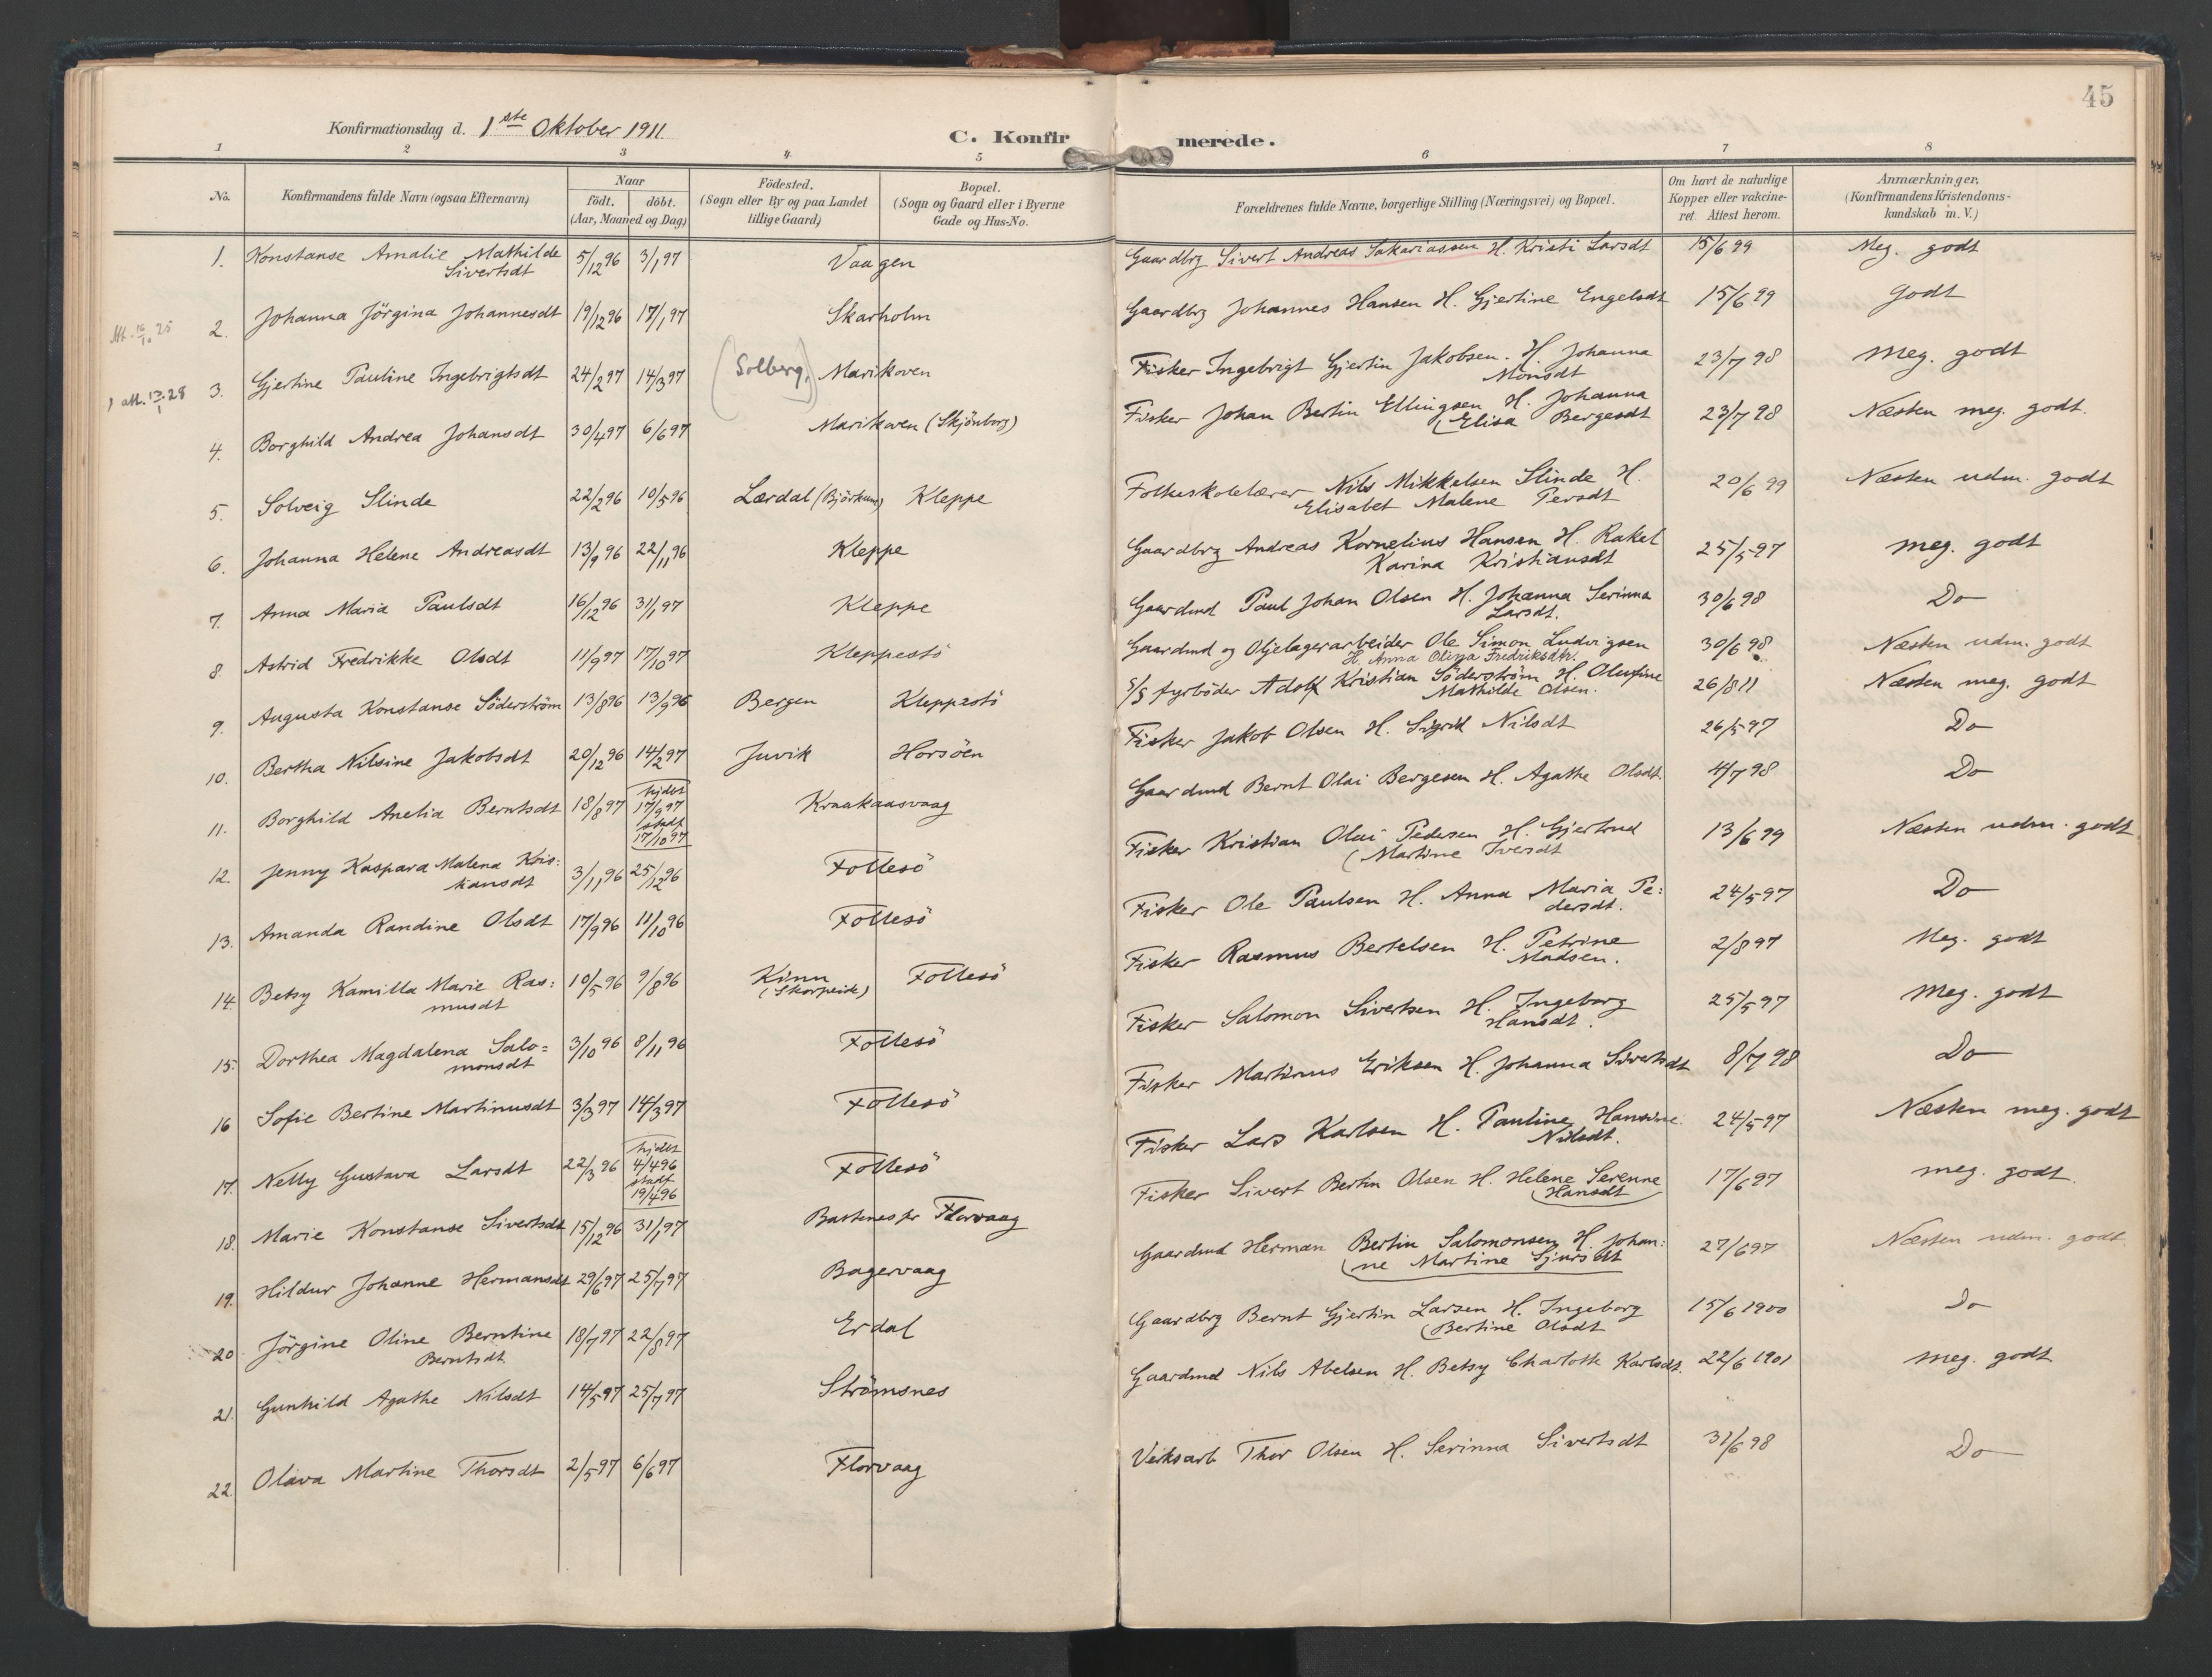 45
Konfirmationsdag d. 1ste Oktober 1911.
C. Konfirmerede.
1 2 3 4 5 6 7 8
No. Konfirmandens fulde Navn (ogsaa Efternavn) Naar födt. döbt. (Aar, Maaned og Dag) Födested. (Sogn eller By og paa Landet tillige Gaard) Bopæl. (Sogn og Gaard eller i Byerne Gade og Hus-No. Forældrenes fulde Navne, borgerlige Stilling (Næringsvei) og Bopæl. Om havt de naturlige Kopper eller vakcineret. Attest herom. Anmærkninger, (Konfirmandens Kristendomskundskab m. V.)
1. Konstanse Amalie Mathilde Sivertsdt 5/12 96 3/1 97 Vaagen Gaardbrg Sivert Andreas Sakariassen H. Kristi Larsdt 15/6 99 Meg. godt
Att. 16/10 25 2. Johanna Jörgina Johannesdt 19/12 96 17/1 97 Skarholm Gaardbrg Johannes Hansen H. Gjertine Engelsdt 15/6 99 Godt
att. 13/1 28 3. Gjertine Pauline Ingebrigtsdt 24/2 97 14/3 97 (Solberg,) Marikoven Fisker Ingebrigt Gjertin Jakobsen. H. Johanna Monsdt 23/7 98 Meg. godt
4. Borghild Andrea Johansdt 30/4 97 6/6 97 Marikoven (Skjönborg) Fisker Johan Bertin Ellingsen H. Johanna (Elisa Bergesdt 23/7 98 Næsten meg. godt.
5. Solveig Slinde 22/2 96 10/5 96 Lærdal (Björkum) Kleppe Folkeskolelærer Nils Mikkelsen Slinde H. Elisabet Malene Persdt 20/6 99 Næsten udm. godt
6. Johanna Helene Andreasdt 13/9 96 22/11 96 Kleppe Gaardbrg Andreas Kornelius Hansen H. Rakel Karina Kristiansdt 25/5 97 Meg. godt
7. Anna Maria Paulsdt 16/12 96 31/1 97 Kleppe Gaardmd Paul Johan Olsen H. Johanna Serinna Larsdt. 30/6 98 Do
8. Astrid Fredrikke Olsdt 11/9 97 17/10 97 Kleppestö Gaardmd og Oljelagerarbeider Ole Simon Ludvigsen H. Anna Olina Fredriksdtr. 30/6 98 Næsten udm. godt
9. Augusta Konstanse Söderström 13/8 96 13/9 96 Bergen Kleppestö S/S fyrböder Adolf Kristian Söderström H. Olufine Mathilde Olsen. 26/8 11 Næsten meg. godt
10. Bertha Nilsine Jakobsdt 20/12 96 14/2 97 Juvik Horsöen Fisker Jakob Olsen H. Sigrid Nilsdt 26/5 97 Do
11. Borghild Anelia Berntsdt 18/8 97 hjdbt 17/9 97 stadf 17/10 97 Kraakaasvaag Gaardmd Bernt Olai Bergesen H. Agathe Olsdt. 4/7 98 Do
12. Jenny Kaspara Malena Kristiansdt 3/11 96 25/12 96 Follesö Fisker Kristian Olai Pedersen H. Gjertrud (Martine Iversdt 13/6 99 Næsten udm. godt
13. Amanda Randine Olsdt 17/9 96 11/10 96 Follesö Fisker Ole Paulsen H. Anna Maria Pe: dersdt. 24/5 97 Do
14. Betsy Kamilla Marie Ras: musdt 10/5 96 9/8 96 Kinn (Skorpeide) Follesö Fisker Rasmus Bertelsen H. Petrine Madsen. 2/8 97 Meg. godt
15. Dorthea Magdalena Salo= monsdt 3/10 96 8/11 96 Follesö Fisker Salomon Sivertsen H. Ingeborg Hansdt. 25/5 97 Meg. godt
16 Sofie Bertine Martinusdt 3/3 97 14/3 97 Follesö Fisker Martinus Eriksen H. Johanna Sivertsdt 8/7 98 Do
17. Nelly Gustava Larsdt 22/3 96 hjdbt 4/4 96 stadf 19/4 96 Follesö Fisker Lars Karlsen H. Pauline Hansine Nilsdt. 24/5 97 Næsten meg. godt
18. Marie Konstanse Sivertsdt 15/12 96 31/1 97 Bastenes pr Florvaag Fisker Sivert Bertin Olsen H. Helene Serenne (Hansdt 17/6 97 Meg. godt.
19. Hildur Johanne Hermansdt 29/6 97 25/7 97 Bagervaag Gaardmd Herman Bertin Salomonsen H Johan: (ne Martine Sjursdt 27/6 97 Næsten udm. godt
20 Jörgine Oline Berntine Berntsdt. 18/7 97 22/8 97 Erdal Gaardbrg Bernt Gjertin Larsen H. Ingeborg (Bertine Olsdt 15/6 1900 Do
21. Gunhild Agathe Nilsdt 14/5 97 25/7 97 Strömsnes Gaardmd Nils Abelsen H. Betsy Charlotte Karlsdt. 22/6 1901 Meg. godt
22. Olava Martine Thorsdt 2/5 97 6/6 97 Florvaag Verksarb Thor Olsen H. Serinna Sivertsdt 31/6 98 Do